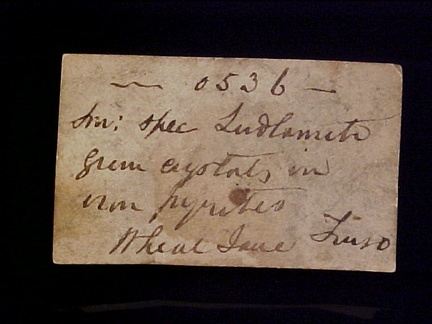 — 0536 —
Sm: spec Ludlamite
green crystals, in
iron pyrites
Wheal Jane Truro